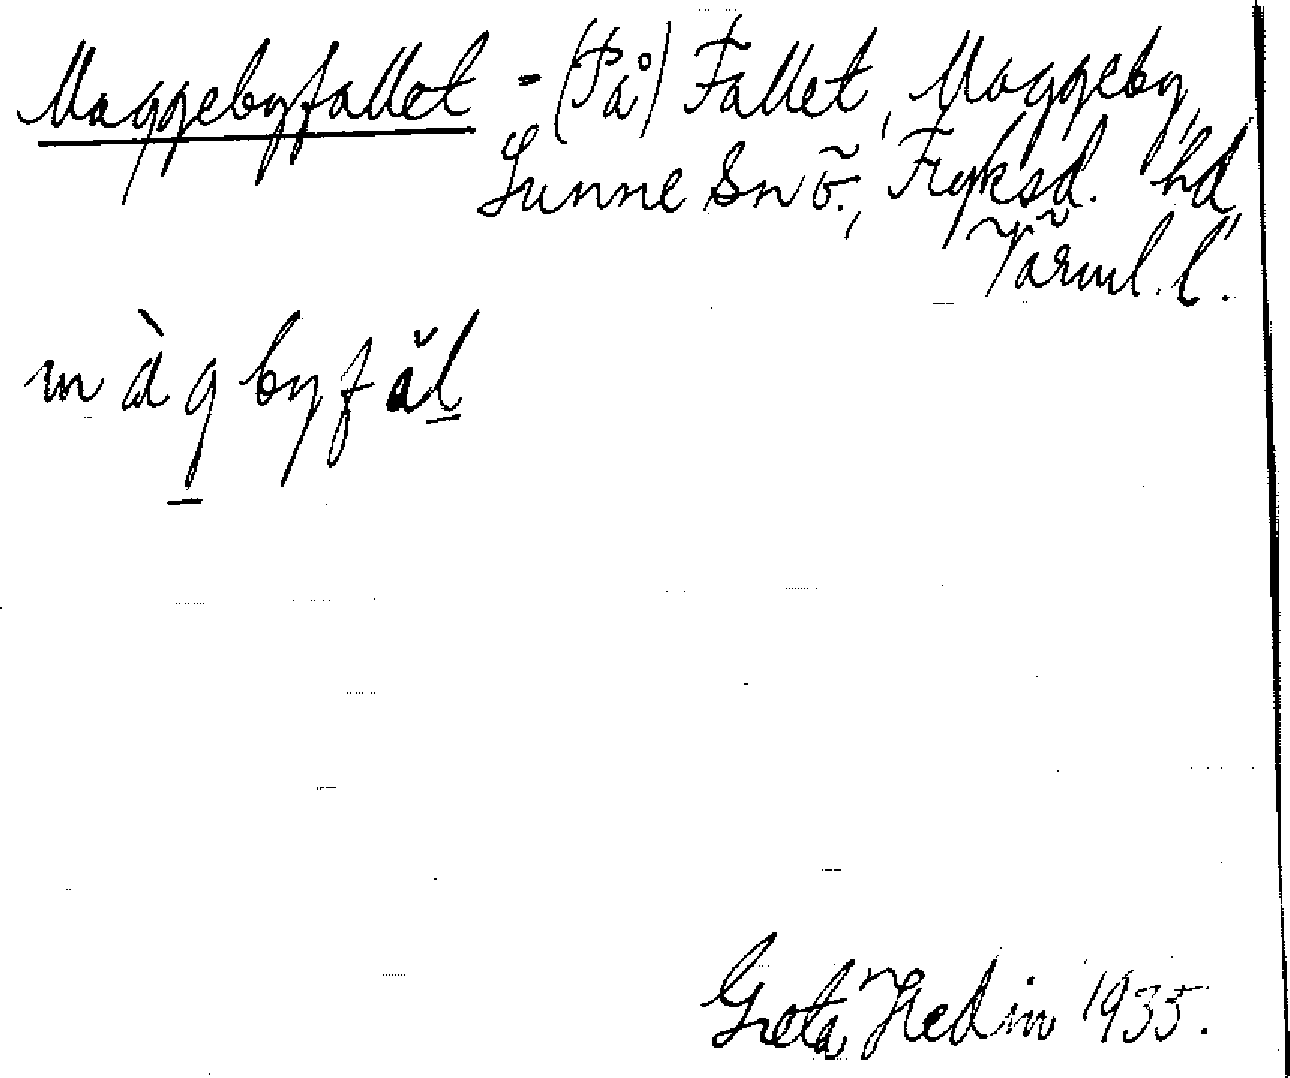 Maggebyfallet - (På) Fallet, Maggeby,
Sunne Sn ö., Fryksd. hd,
Värml. l.
màgbyfăl
Greta Hedin 1935.